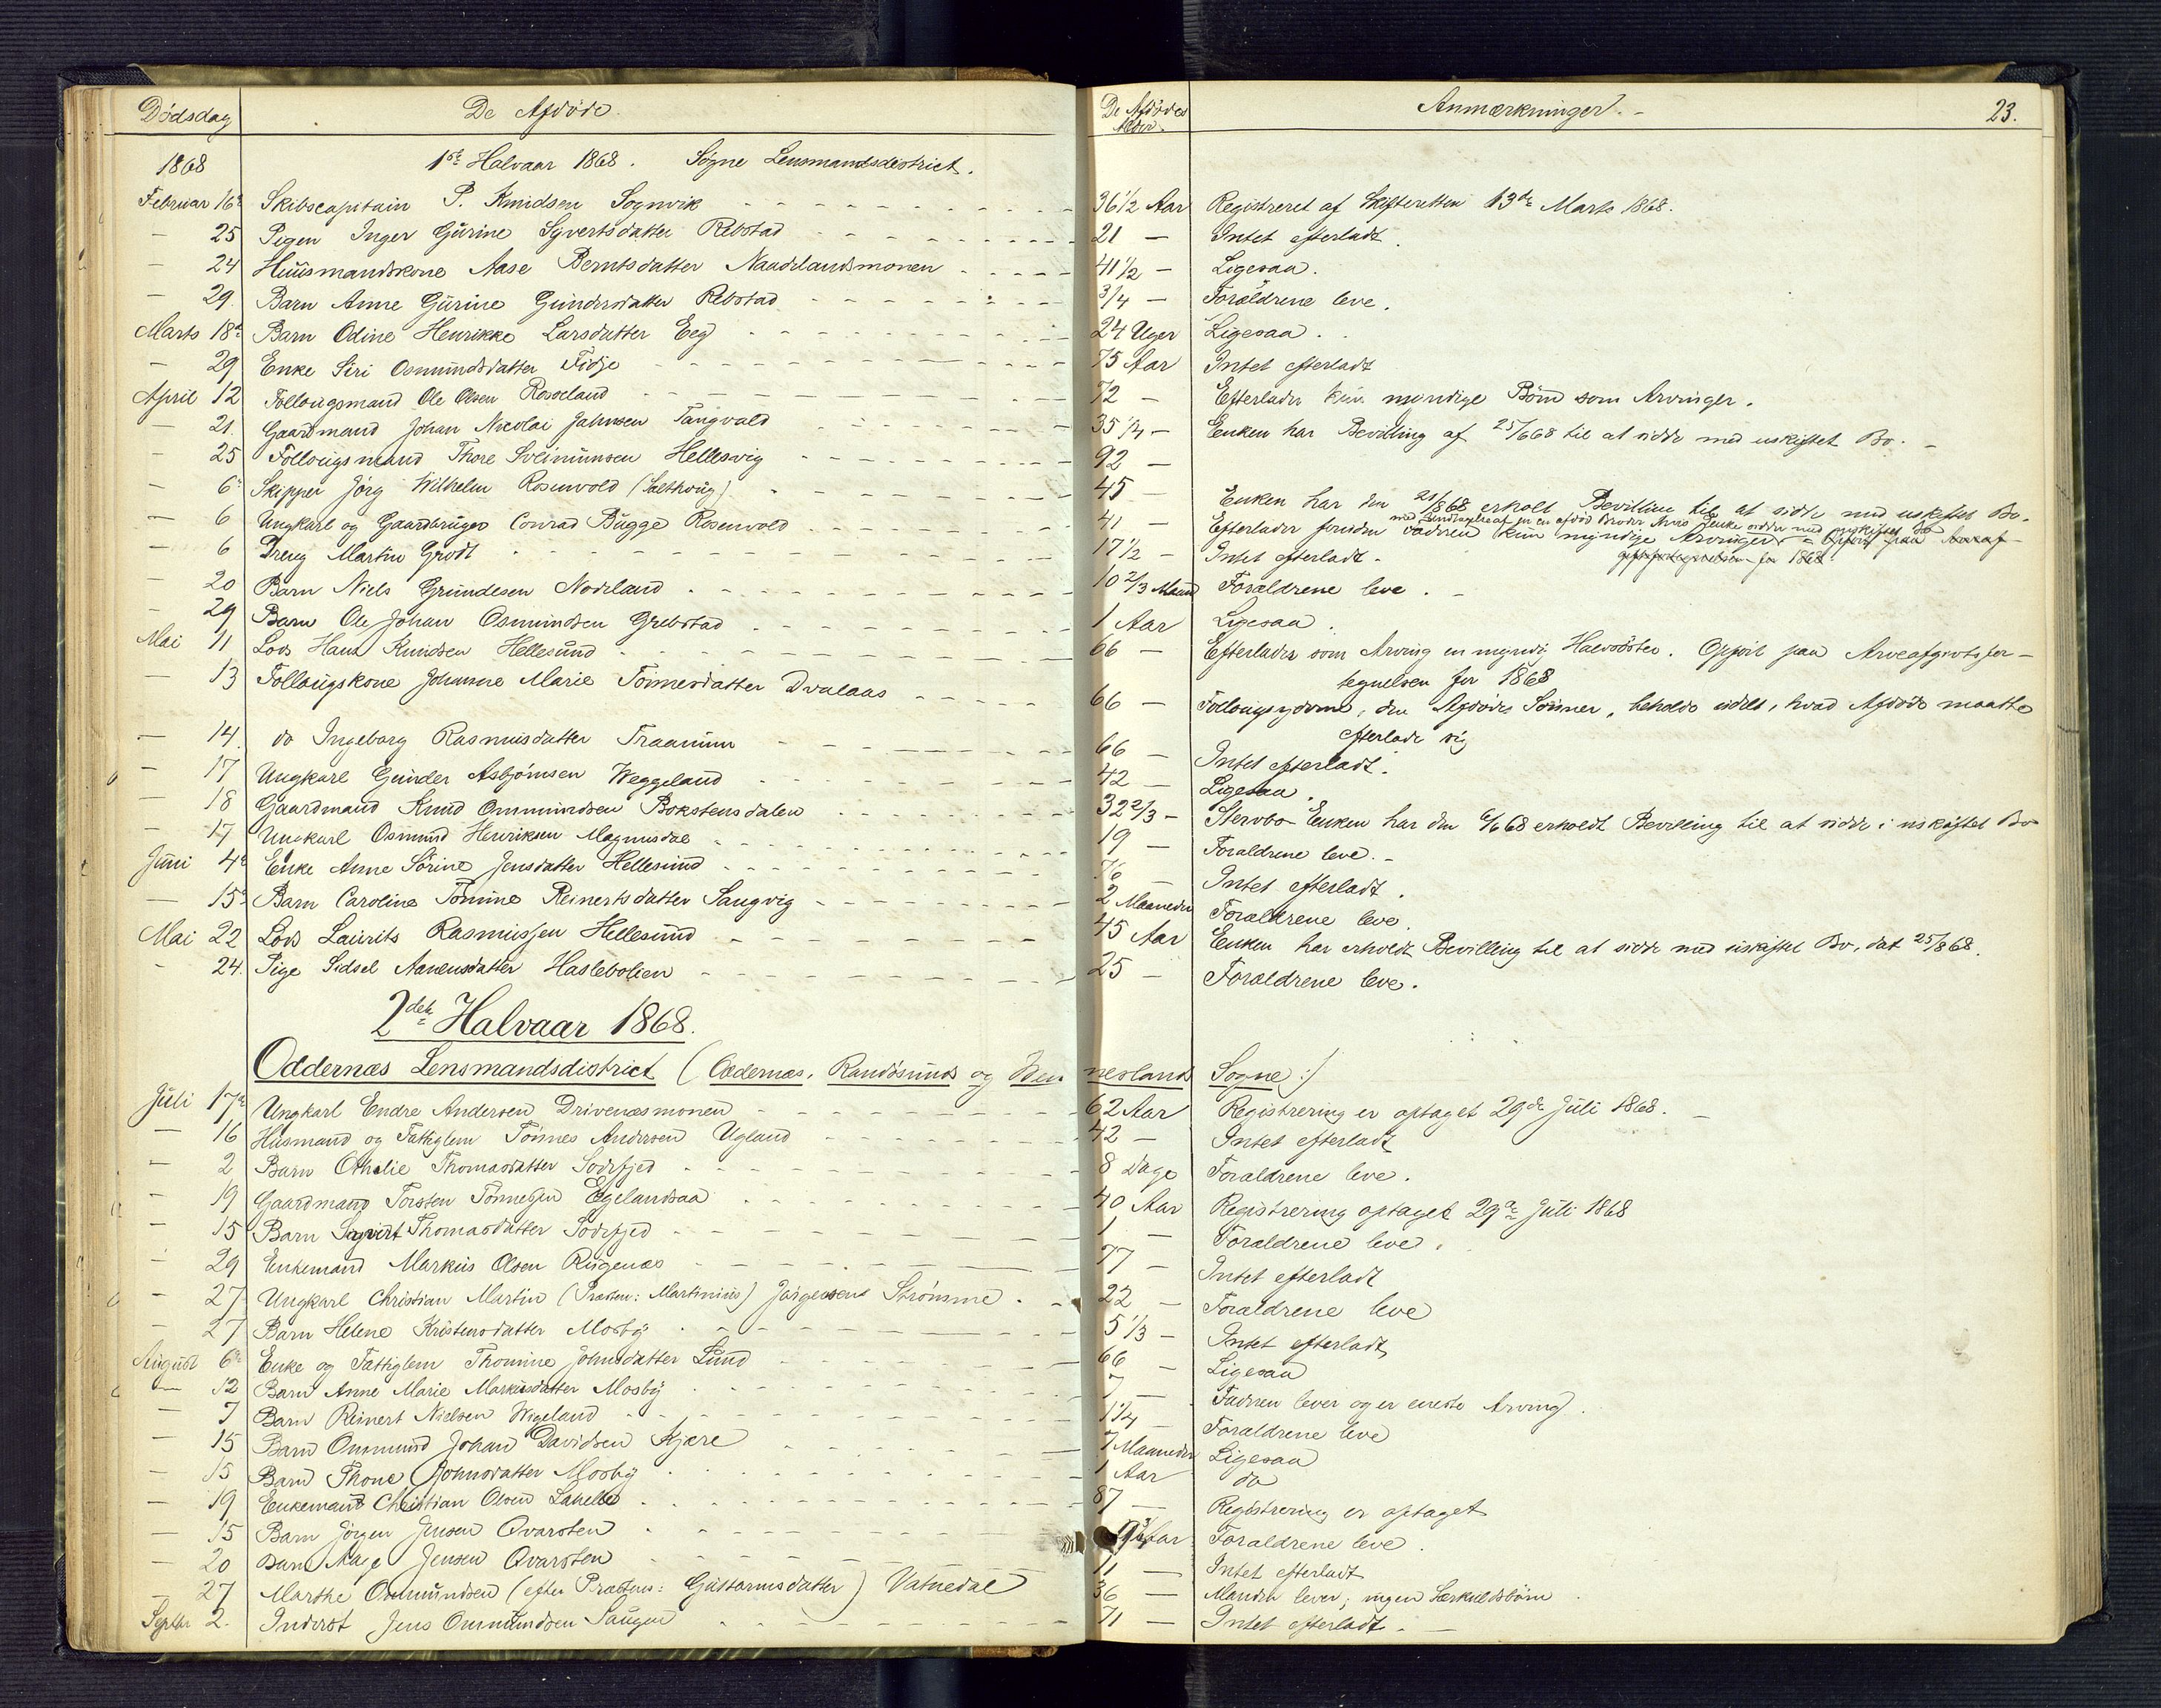 Dødsdag De Afdøde De Afdødes Alder. Anmærkninger. - 23.
1868 1ste Halvaar 1868. Søgne Lensmandsdistrict.
Februar 16de Skibscapitain P. Knudsen Sognvik 36 1/2 Aar Registreret af Skifteretten 13de Marts 1868.
— 25 Pigen Inger Gurine Syvertsdatter Rebstad 21 — Intet efterladt.
— 24 Huusmandskone Aase Berntsdatter Naudelandsmonen 41 1/2 — Ligesaa.
— 29. Barn Anne Gurine Gundersdatter Rebstad 3/4 — Forældrene leve.
Marts 18de Barn Odine Henrikke Larsdatter Eeg 24 Uger Ligesaa.
— 29 Enke Siri Osmundsdatter Fidje 75 Aar Intet efterladt
April 12 Follougsmand Ole Olsen Rosseland 72 — Efterlader kun myndige Børn som Arvinger.
— 21. Gaardmand Johan Nicolai Jahnsen Tangvald 35 1/4 — Enken har Bevilling af 25/6 68 til at sidde med uskiftet Bo. —
— 25 Follougsmand Thore Sveinunsen Hellesvig 92 —
— 6te Skipper Jørg Wilhelm Rosenvold (Salthoug) 45 — Enken har den 21/8 68 erholdt Bevilling til at sidde med uskiftet Bo.
— 6 Ungkarl og Gaardbruger Conrad Bugge Rosenvold 41 — Efterlader foruden kun myndige Arvinger
— 6 Dreng Martin Grodt 17 1/2 — Intet efterladt. for 1868.
— 20 Barn Niels Grundesen Nodeland 10 2/3 Maaned Forældrene leve. —
— 29 Barn Ole Johan Osmundsen Grebstad 1 Aar Ligesaa.
Mai 11 Lods Hans Knudsen Hellesund 66 — Efterlader som Arving en myndig Halvsøster. Opført paa Arveafgivtsfor-
tegnelsen for 1868
— 13 Follougskone Johanne Marie Tønnesdatter Dvalaas 66 — Follougsyderne, den Afdødes Sønner, beholde udelt, hvad Afdøde maatte
efterlade sig
— 14. do Ingeborg Rasmusdatter Traanum 66 — Intet efterladt.
— 17 Ungkarl Gunder Asbjørnsen Weggeland 42 — Ligesaa.
— 18 Gaardmand Knud Ommundsen Bokstensdalen 32 2/3 — Stervbo Enken har den 6/6 68 erholdt Bevilling til at sidde i uskiftet Bo
— 17 Ungkarl Osmund Henriksen Magnusdal 19 — Forældrene leve. —
Juni 4de Enke Anne Sørine Jensdatter Hellesund 76 — Intet efterladt.
— 15de Barn Caroline Tomine Reinertsdatter Langvig 2 Maaneder Forældrene leve.
Mai 22 Lods Laurits Rasmussen Hellesund 45 Aar Enken har erholdt Bevilling til at sidde med uskiftet Bo, dat 25/8 68.
- 24. Pige Sidsel Aanensdatter Haslebolien 25 — Forældrene leve.
2det Halvaar 1868.
Oddernæs Lensmandsdistrict (Oddernæs, Randøsunds og Vennesland Sogne:)
Juli 17de Ungkarl Endre Andersen Drivenæsmonen 62 Aar Registrering er optaget 29de Juli 1868. —
— 16 Husmand og Fattiglem Tønnes Andersen Ugland 42 — Intet efterladt
— 2 Barn Othelie Thomasdatter Sodefjed 8 Dage Forældrene leve.
— 19 Gaardmand Torsten Tønnesen Egelandsaa 40 Aar Registrering optaget 29de Juli 1868
— 15 Barn Sigvart Thomasdatter Sodefjed 1 — Forældrene leve.
— 29 Enkemand Markus Olsen Rugenæs 77 — Intet efterladt
- 27 Ungkarl Christian Martin (Præsten: Martinius) Jørgensen Strømme 22 — Forældrene leve
- 27 Barn Helene Kristensdatter Mosby 5 1/3 — Intet efterladt
August 6te Enke og Fattiglem Thomine Johnsdatter Lund 66 — Ligesaa
— 12 Barn Anne Marie Markusdatter Mosby 7 — Faderen lever og er eneste Arving.
— 7 Barn Reinert Nielsen Wigeland 1 1/4 — Forældrene leve
— 15 Barn Ommund Johan Davidsen Kjære 7 Maaneder Ligesaa
— 15 Barn Thone Johnsdatter Mosby 1 Aar do
— 19 Enkemand Christian Olsen Lahelle 87 — Registrering er optaget
— 15 Barn Jørgen Jensen Qvarsten Aar Forældrene leve.
— 20 Barn Aage Jensen Qvarsten 11 — Intet efterladt
— 27 Marthe Ommundsen (efter Præsten: Guttormsdatter) Vatnedal 36 — Manden lever; ingen Særkuldsbørn
Septbr 2. Inderst Jens Ommundsen Saugen 71 — Intet efterladt. —